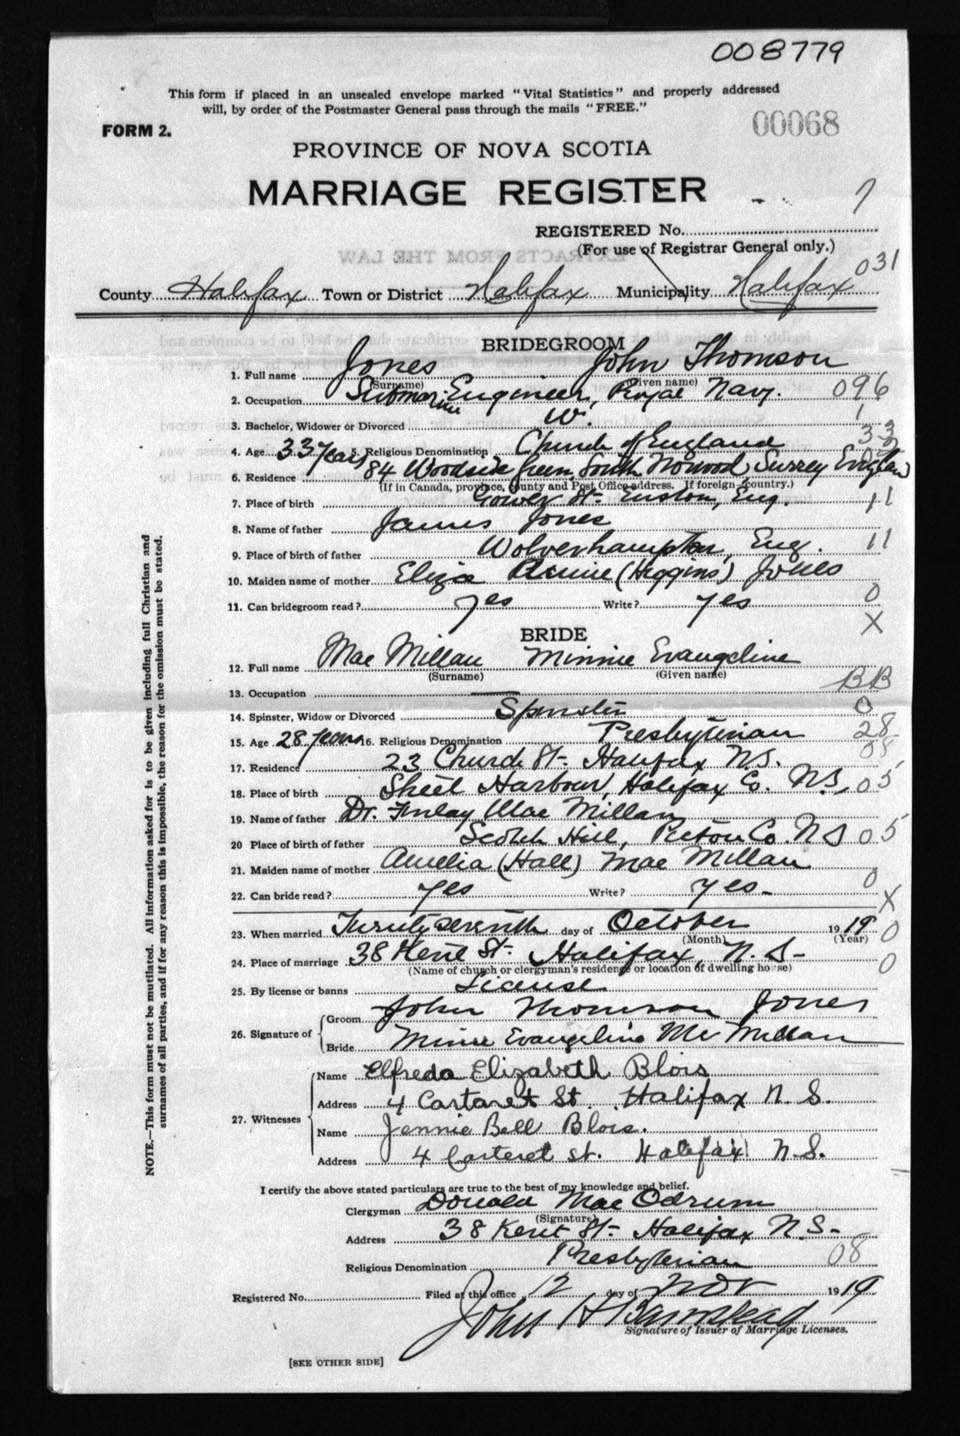 008779
This form if placed in an unsealed envelope marked "Vital Statistics" and properly addressed
will, by order of the Postmaster General pass through the mails "FREE."
FORM 2.
00068
PROVINCE OF NOVA SCOTIA
MARRIAGE REGISTER
REGISTERED No.
(For use of Registrar General only.)
031
County Halifax Town or District Halifax Municipality Halifax
BRIDEGROOM
1. Full name Jones John Thomson
(Surname) (Given name)
2. Occupation Submarine Engineer, Royal Navy. 096
3. Bachelor, Widower or Divorced W. 1
4. Age 33 years 5. Religious Denomination Church of England 33
6. Residence 84 Woodside Green, South Norwood Surrey England
(If in Canada, province, county and Post Office address. If foreign country.)
7. Place of birth Gower St. Euston, Eng. 11
8. Name of father James Jones
9. Place of birth of father Wolverhampton, Eng. 11
10. Maiden name of mother Eliza Annie (Higgins) Jones
11. Can bridegroom read? yes Write? yes 0
X
BRIDE
12. Full name Mac Millan Minnie Evangeline
(Surname) (Given name)
13. Occupation — BB
14. Spinster, Widow or Divorced Spinster 0
15. Age 28 years 16. Religious Denomination Presbyterian 28
17. Residence 23 Church St. Halifax N.S. 08
18. Place of birth Sheet Harbour, Halifax Co. N.S. 05
19. Name of father Dr. Finlay Mac Millan
20 Place of birth of father Scotch Hill, Pictou Co. N.S 05
21. Maiden name of mother Amelia (Hall) Mac Millan
22. Can bride read? yes Write? yes 0
X
23. When married Twenty seventh day of October 1919 0
(Month) (Year)
24. Place of marriage 38 Kent St. Halifax, N.S. 0
(Name of church or clergyman's residence or location of dwelling house)
25. By license or banns License
26. Signature of Groom John Thomson Jones
Bride Minnie Evangeline Mc Millan
27. Witnesses Name Elfreda Elizabeth Blois
Address 4 Cartaret St. Halifax N.S.
Name Jennie Bell Blois.
Address 4 Carteret St. Halifax N.S.
I certify the above stated particulars are true to the best of my knowledge and belief.
Clergyman Donald Mac Odrum
(Signature)
Address 38 Kent St. Halifax N.S.
Religious Denomination Presbyterian 08
Registered No. Filed at this office 12 day of Nov 1919
John H Barnstead
Signature of Issuer of Marriage Licenses.
[SEE OTHER SIDE]
NOTE.—This form must not be mutilated. All information asked for is to be given including full Christian and
surnames of all parties, and if for any reason this is impossible, the reason for the omission must be stated.